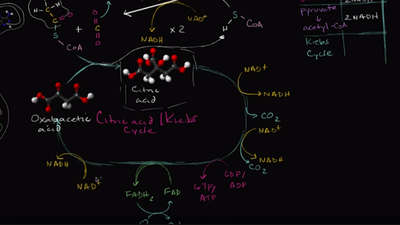 2 NADH
pyruvate
↓
acetyl CoA
2 NADH
Krebs
Cycle
NAD+
NADH
x 2
S
CoA
H
S
CoA
+
C
O
Citric
acid
Oxaloacetic
acid
Citric acid / Krebs
Cycle
NAD+
NADH
CO2
NAD+
NADH
CO2
GDP/
ADP
GTP/
ATP
FAD
FADH2
NADH
NAD+